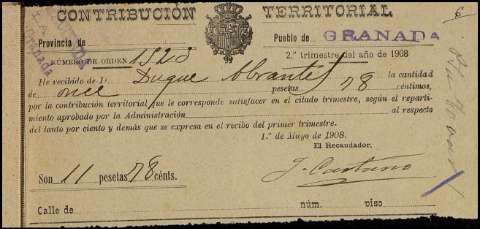 CONTRIBUCIÓN TERRITORIAL
6
Provincia de Granada
Pueblo de GRANADA
NÚMERO DE ORDEN 1520
2.º trimestre del año de 1908
He recibido de D. Duque Abrantes la cantidad
de once pesetas 78 céntimos,
por la contribución territorial que le corresponde satisfacer en el citado trimestre, según el reparti-
miento aprobado por la Administración al respecto
del tanto por ciento y demás que se expresa en el recibo del primer trimestre.
1.º de Mayo de 1908.
El Recaudador,
Son 11 pesetas 78 cénts.
Calle de núm. piso